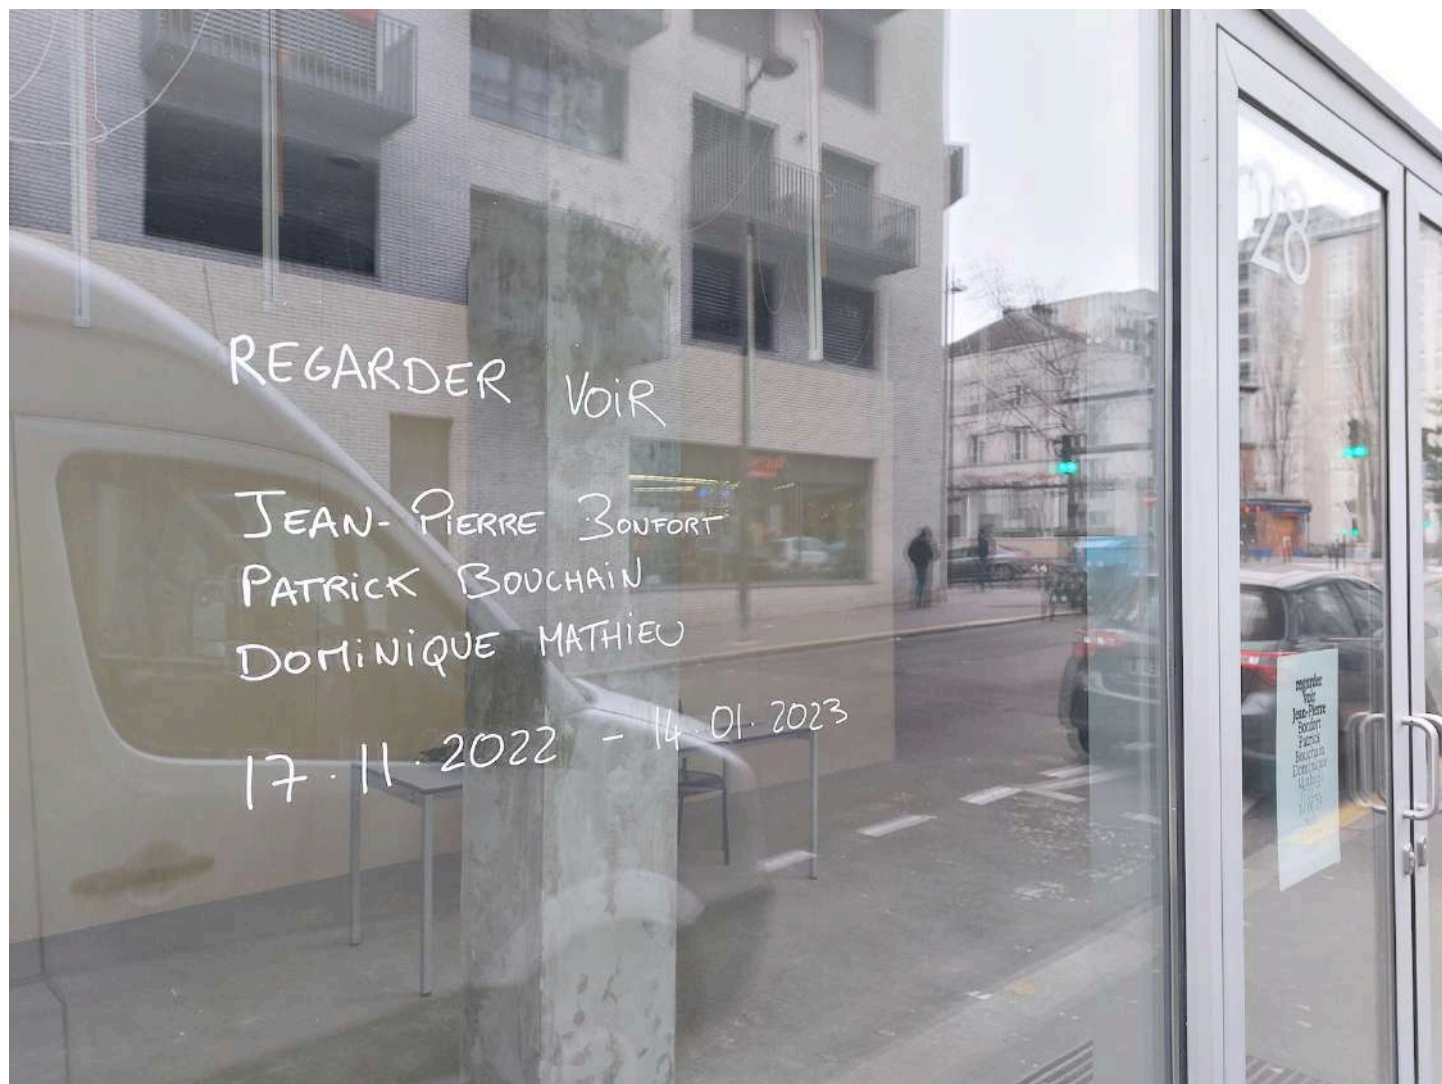 REGARDER VOIR
JEAN-PIERRE BONFORT
PATRICK BOUCHAIN
DOMINIQUE MATHIEU
17.11.2022 - 14.01.2023
28
regarder
voir
Jean-Pierre
Bonfort
Patrick
Bouchain
Dominique
Mathieu